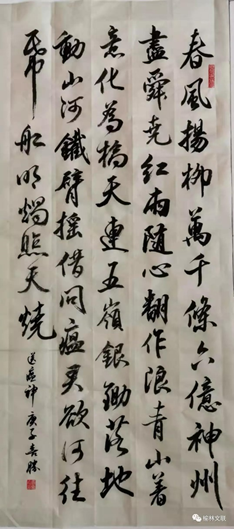 春風揚柳萬千條六億神州
盡舜堯紅雨隨心翻作浪青山着
意化為橋天連五嶺銀鋤落地
動山河鐵臂搖借問瘟君欲何往
帋船明燭照天燒
送瘟神 庚子 勝
榆林文联